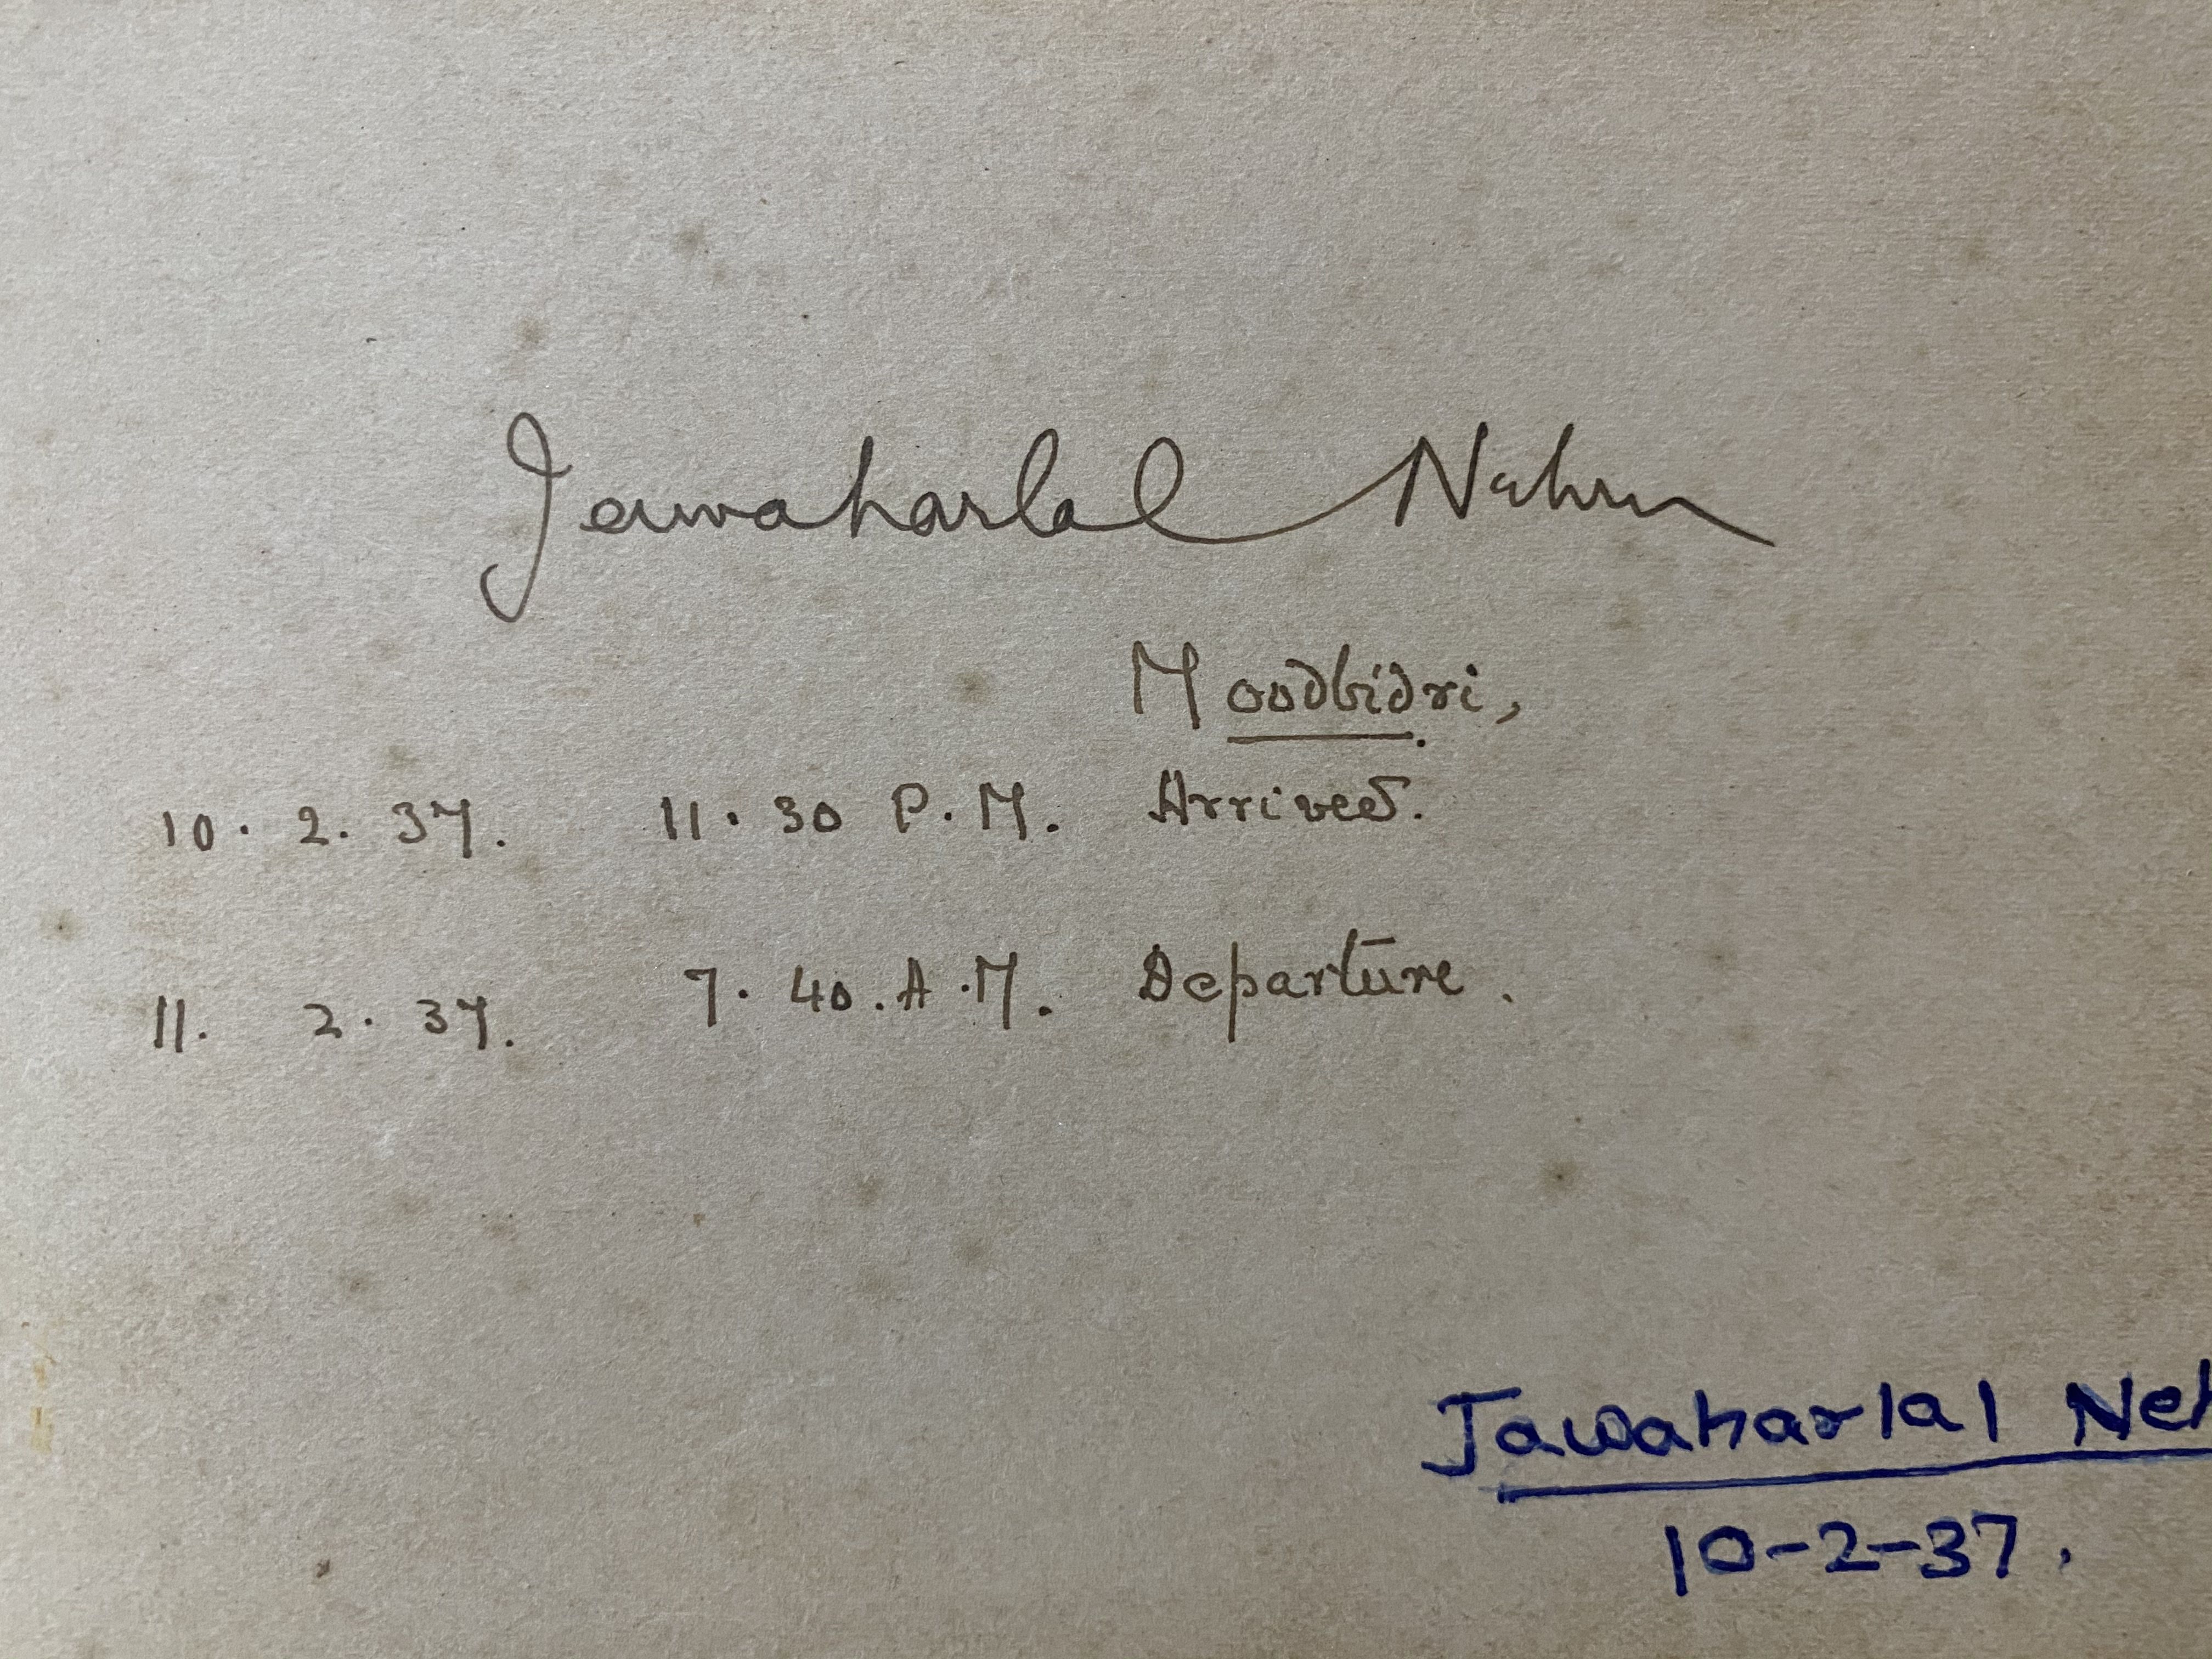 Jawaharlal Nehru
Moodbidri,
10. 2. 37. 11.30 P.M. Arrived.
11. 2. 37. 7.40.A.M. Departure.
Jawaharlal Neh
10-2-37.